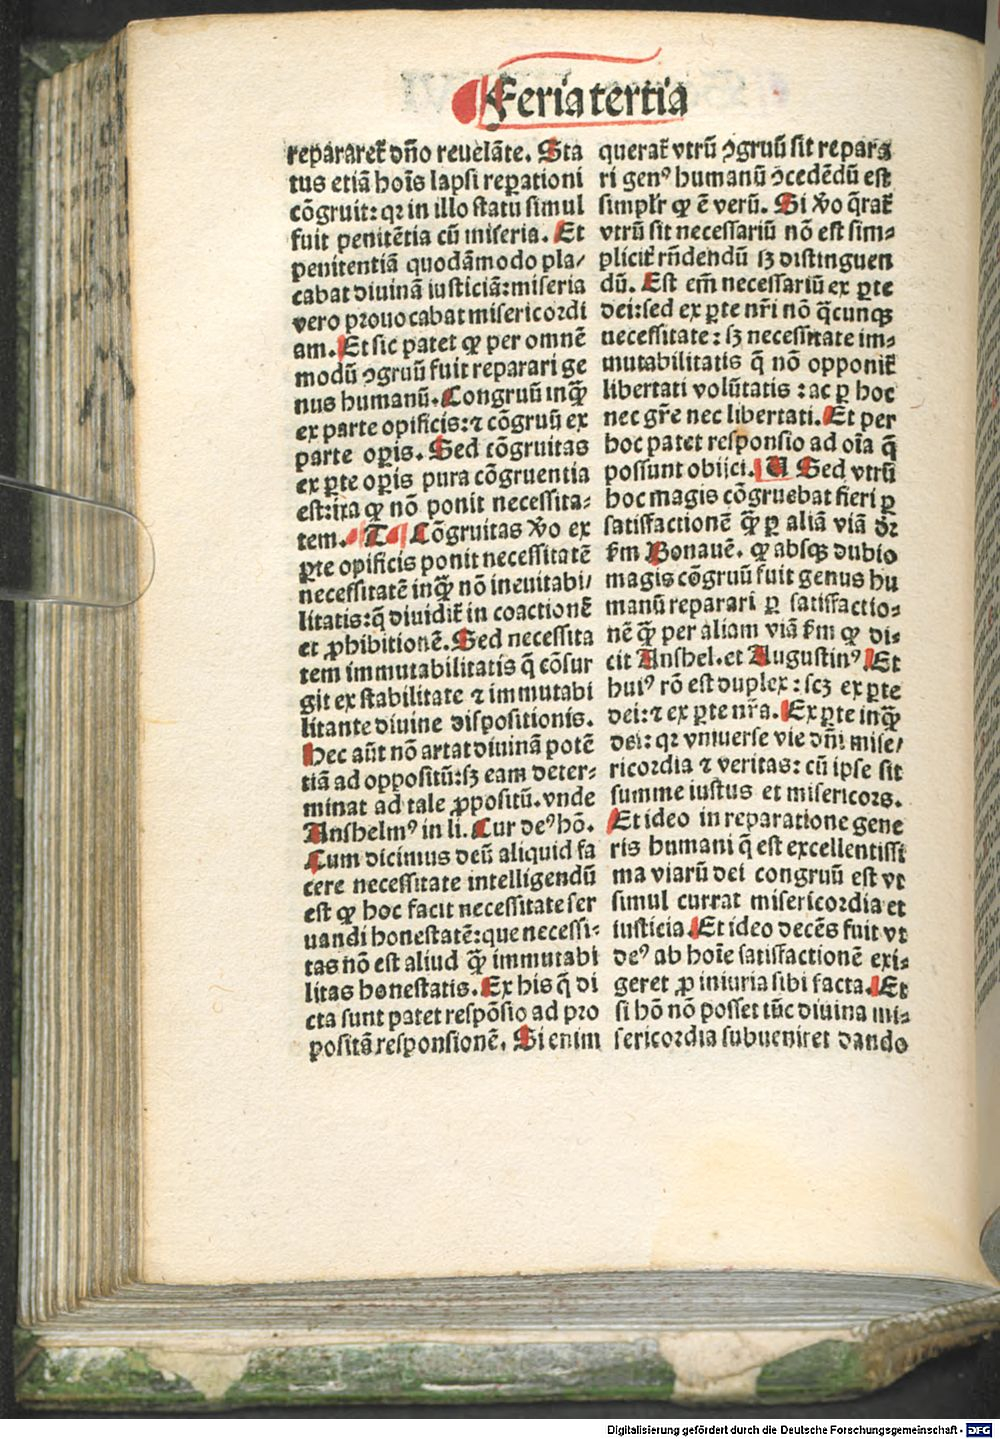 Feria tertia
repararet᷑ dño reuelãte. Sta
tus etiã hoĩs lapsi reꝑationi
cõgruit: qꝛ in illo statu simul
fuit penitẽtia cũ miseria. Et
penitentiã quodãmodo pla⸗
cabat diuinã iusticiã: miseria
vero prouocabat misericordi
am. Et sic patet ꝙ per omnẽ
modũ ꝯgruũ fuit reparari ge
nus humanũ. Congruũ inq̃ꝫ
ex parte opificis: ⁊ cõgruũ ex
parte oꝑis. Sed cõgruitas
ex ꝑte oꝑis pura cõgruentia
est: ita ꝙ nõ ponit necessita⸗
tem. T Cõgruitas ꝟo ex
ꝑte opificis ponit necessitatẽ
necessitatẽ inq̃ꝫ nõ ineuitabi⸗
litatis: q̃ diuidit᷑ in coactionẽ
et ꝓhibitionẽ. Sed necessita
tem immutabilitatis q̃ cõsur
git ex stabilitate ⁊ immutabi
litante diuine dispositionis.
Hec aũt nõ artat diuinã potẽ
tiã ad oppositũ: sꝫ eam deter⸗
minat ad tale ꝓpositũ. vnde
Anshelmꝰ in li. Cur deꝰ hõ.
Cum dicimus deũ aliquid fa
cere necessitate intelligendũ
est ꝙ hoc facit necessitate ser
uandi honestatẽ: que necessi⸗
tas nõ est aliud q̃ꝫ immutabi
litas honestatis. Ex his q̃ di
cta sunt patet respõsio ad pro
positã responsionẽ. Si enim
querat᷑ vtrũ ꝯgruũ sit repara
ri genꝰ humanũ ꝯcedẽdũ est
simplr̃ ꝙ ẽ verũ. Si ꝟo q̃rat᷑
vtrũ sit necessariũ nõ est sim⸗
plicit᷑ rñdendũ sꝫ distinguen
dũ. Est em̃ necessariũ ex ꝑte
dei: sed ex ꝑte nr̃i nõ q̃cunqꝫ
necessitate: sꝫ necessitate im⸗
mutabilitatis q̃ nõ opponit᷑
libertati volũtatis: ac ꝑ hoc
nec gr̃e nec libertati. Et per
hoc patet responsio ad oĩa q̃
possunt obijci. V Sed vtrũ
hoc magis cõgruebat fieri ꝑ
satisfactionẽ q̃ꝫ ꝑ aliã viã dr̃
ẜm Bonauẽ. ꝙ absqꝫ dubio
magis cõgruũ fuit genus hu
manũ reparari ꝑ satisfactio⸗
nẽ q̃ꝫ per aliam viã ẜm ꝙ di⸗
cit Anshel. et Augustinꝰ Et
huiꝰ rõ est duplex: scꝫ ex ꝑte
dei: ⁊ ex ꝑte nr̃a. Ex ꝑte inq̃ꝫ
dei: qꝛ vniuerse vie dñi mise⸗
ricordia ⁊ veritas: cũ ipse sit
summe iustus et misericors.
Et ideo in reparatione gene
ris humani q̃ est excellentissi
ma viarũ dei congruũ est vt
simul currat misericordia et
iusticia. Et ideo decẽs fuit vt
deꝰ ab hoĩe satisfactionẽ exi⸗
geret ꝓ iniuria sibi facta. Et
si hõ nõ posset tũc diuina mi⸗
sericordia subueniret dando
Digitalisierung gefördert durch die Deutsche Forschungsgemeinschaft - DFG